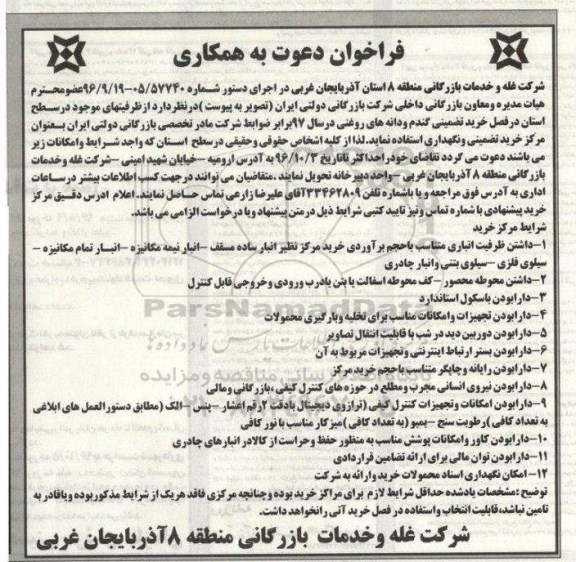 فراخوان دعوت به همکاری
شرکت غله و خدمات بازرگانی منطقه ۸ استان آذربایجان غربی در اجرای دستور شماره ۰۵/۵۷۷۴۰-۹۶/۹/۱۹عضومحترم
هیات مدیره ومعاون بازرگانی داخلی شرکت بازرگانی دولتی ایران (تصویر به پیوست )درنظردارد ازظرفیتهای موجود درسطح
استان درفصل خرید تضمینی گندم ودانه های روغنی درسال ۹۷برابر ضوابط شرکت مادر تخصصی بازرگانی دولتی ایران بعنوان
مرکز خرید تضمینی ونگهداری استفاده نماید.لذا از کلیه اشخاص حقوقی وحقیقی درسطح استان که واجد شرایط وامکانات زیر
می باشند دعوت می گردد تقاضای خودراحداکثر تاتاریخ ۹۶/۱۰/۳ به آدرس ارومیه –خیابان شهید امینی –شرکت غله وخدمات
بازرگانی منطقه ۸ آذربایجان غربی – واحد دبیرخانه تحویل نمایند .متقاضیان می توانند درجهت کسب اطلاعات بیشتر درساعات
اداری به آدرس فوق مراجعه ویا باشماره تلفن ۳۳۴۶۲۸۰۹آقای علیرضا زارعی تماس حاصل نمایند. اعلام ادرس دقیق مرکز
خرید پیشنهادی با شماره تماس ونیز تایید کتبی شرایط ذیل درمتن پیشنهاد ویا درخواست الزامی می باشد.
شرایط مرکز خرید
۱-داشتن ظرفیت انباری متناسب باحجم برآوردی خرید مرکز نظیر انبار ساده مسقف –انبار نیمه مکانیزه –انبار تمام مکانیزه –
سیلوی فلزی –سیلوی بتنی وانبار چادری
۲-داشتن محوطه محصور –کف محوطه اسفالت یا بتن بادرب ورودی وخروجی قابل کنترل
۳-دارابودن باسکول استاندارد
۴-دارابودن تجهیزات وامکانات مناسب برای تخلیه وبارگیری محمولات
۵-دارابودن دوربین دید در شب با قابلیت انتقال تصاویر
۶-دارابودن بستر ارتباط اینترنتی وتجهیزات مربوط به آن
۷-دارابودن رایانه وچاپگر متناسب باحجم خرید مرکز
۸-دارابودن نیروی انسانی مجرب ومطلع در حوزه های کنترل کیفی ،بازرگانی ومالی
۹-دارابودن امکانات وتجهیزات کنترل کیفی (ترازوی دیجیتال بادقت ۲رقم اعشار –پنس –الک (مطابق دستورالعمل های ابلاغی
به تعداد کافی )رطوبت سنج –بمبو (به تعداد کافی )میز کار مناسب با نور کافی
۱۰-دارابودن کاور وامکانات پوشش مناسب به منظور حفظ وحراست از کالا در انبارهای چادری
۱۱-دارابودن توان مالی برای ارائه تضامین قراردادی
۱۲- امکان نگهداری اسناد محمولات خرید وارائه به شرکت
توضیح :مشخصات یادشده حداقل شرایط لازم برای مراکز خرید بوده وچنانچه مرکزی فاقد هریک از شرایط مذکوربوده ویاقادر به
تامین نباشد،قابلیت انتخاب واستفاده در فصل خرید آتی رانخواهد داشت.
شرکت غله وخدمات بازرگانی منطقه ۸آذربایجان غربی
ParsNamadData